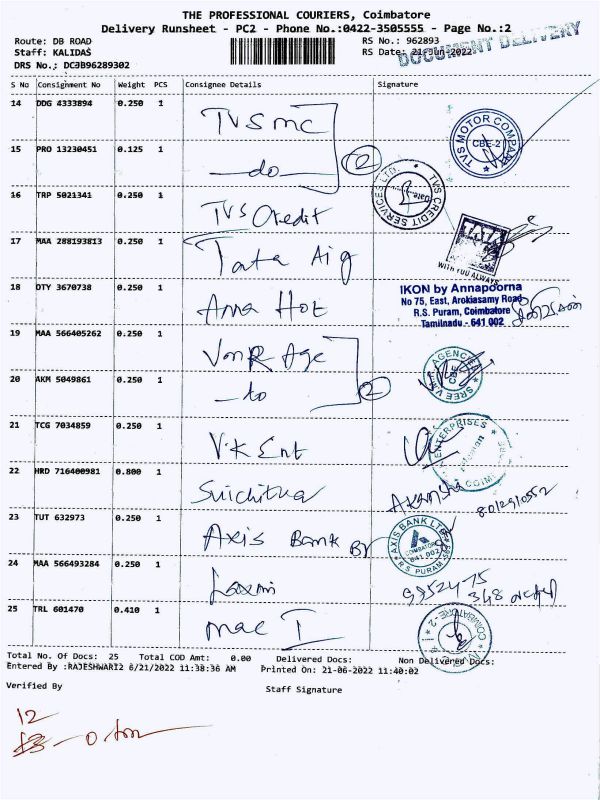 THE PROFESSIONAL COURIERS, Coimbatore
Delivery Runsheet - PC2 - Phone No.:0422-3505555 - Page No.:2
Route: DB ROAD RS No.: 962893
Staff: KALIDAS RS Date: 21-Jun-2022
DOCUMENT DELIVERY
DRS No.; DCJB96289302
S No Consignment No Weight PCS Consignee Details Signature
14 DDG 4333894 0.250 1 TVS mc
TVS MOTOR COMPANY CBE-2
15 PRO 13230451 0.125 1 -do- 2
16 TRP 5021341 0.250 1 TVS Credit
TVS CREDIT SERVICES LTD. Date
17 MAA 288193813 0.250 1 Tata Aig
TATA
WITH YOU ALWAYS
18 OTY 3670738 0.250 1 Anna Hot
IKON by Annapoorna
No 75, East, Arokiasamy Road
R.S. Puram, Coimbatore
Tamilnadu - 641 002
19 MAA 566405262 0.250 1 VMR Age
SREE VMR AGENCIES CBE
20 AKM 5049861 0.250 1 -do- 2
21 TCG 7034859 0.250 1 V.K Ent
ENTERPRISES
22 HRD 716400981 0.800 1 Suichitha
Akansha 8012910552
23 TUT 632973 0.250 1 Axis Bank Br
AXIS BANK LTD COIMBATORE 641 002 R S PURAM
24 MAA 566493284 0.250 1 Laxmi
348
25 TRL 601470 0.410 1 mac I
COIMBATORE-2
Total No. Of Docs: 25 Total COD Amt: 0.00 Delivered Docs: Non Delivered Docs:
Entered By :RAJESHWARI2 6/21/2022 11:38:36 AM Printed On: 21-06-2022 11:40:02
Verified By Staff Signature
12